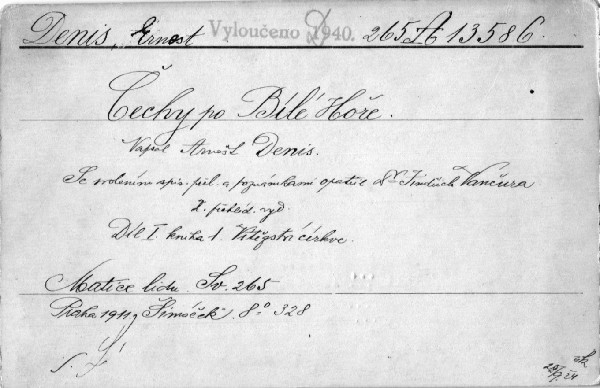 Denis, Ernest Vyloučeno 1940. 265 A 13586.
Čechy po Bílé Hoře.
Napsal Arnošt Denis.
Se svolením spis. přel. a poznámkami opatřil Dr Jindřich Vančura
2. přehléd. vyd.
Díl I. kniha 1. Vítězství církve.
Matice lidu. Sv. 265
Praha 1911, Šimáček. 8° 328